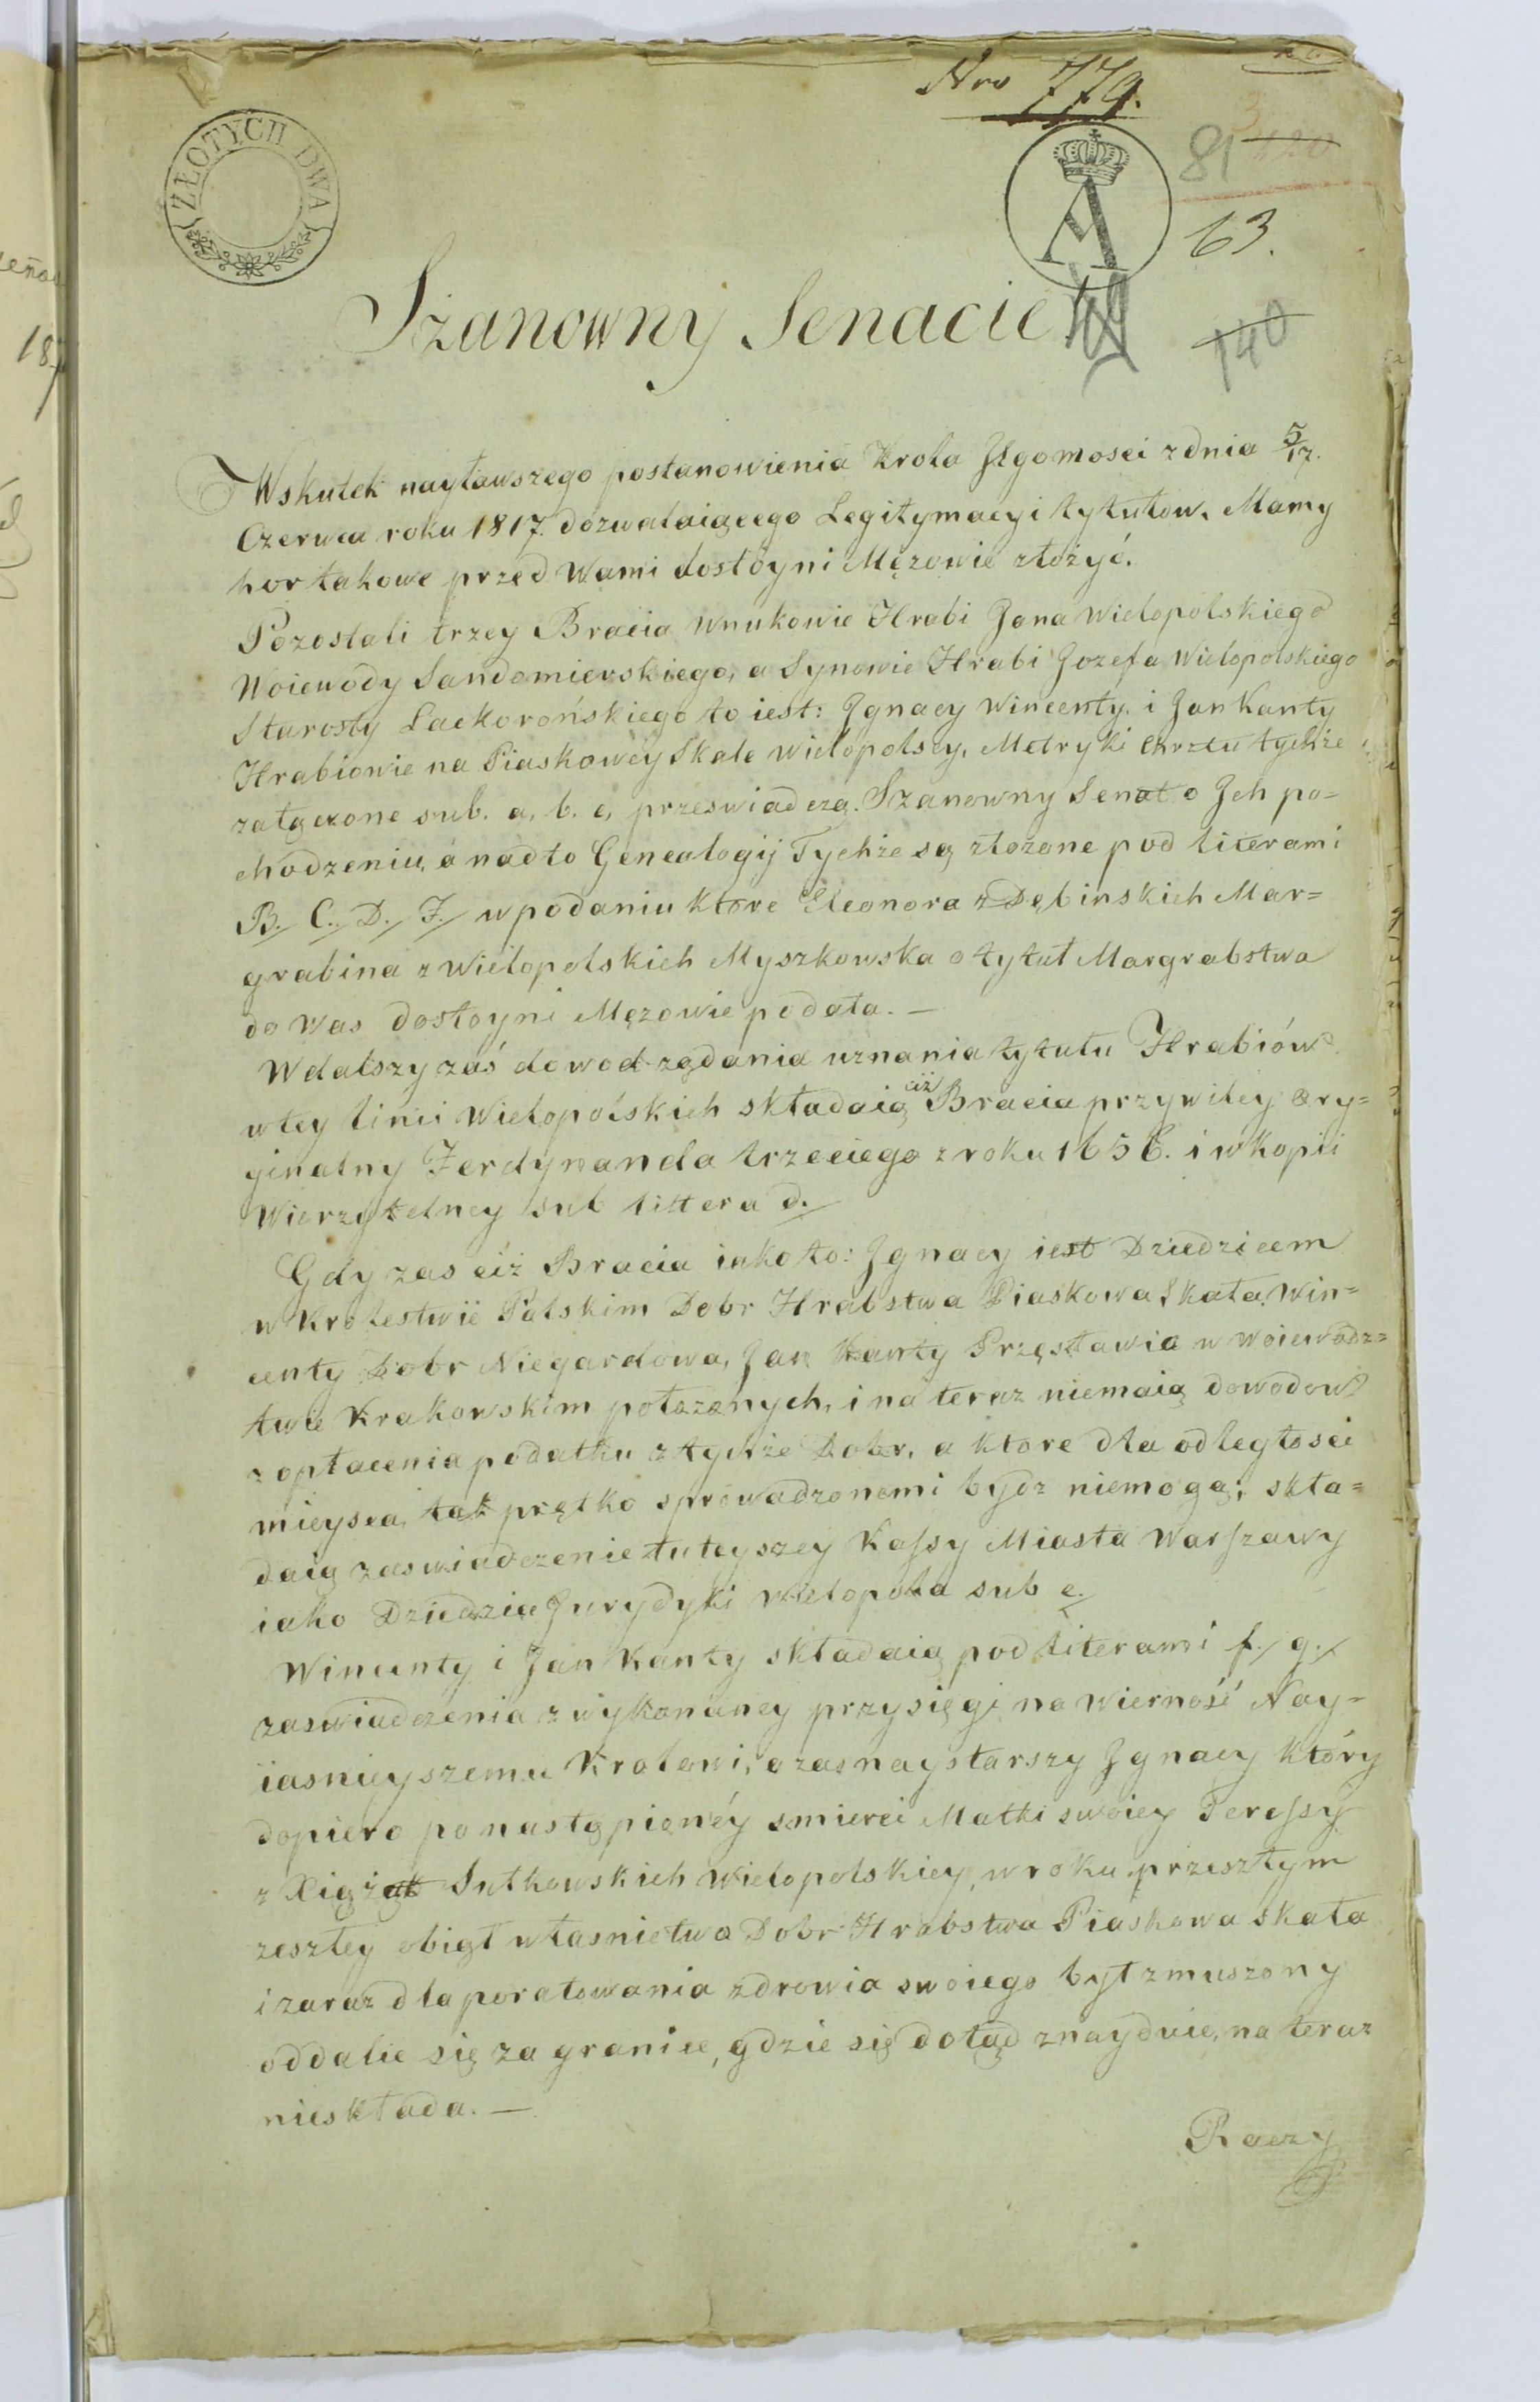 Nro 779.
ZŁOTYCH DWA
A
81
3
220
63.
140
Szanowny Senacie
Wskutek nayławszego postanowienia Krola Jlgomosci z dnia 5/17.
Czerwca roku 1817. dozwalaiącego Legitymacyi tytułow. Mamy
hor takowe przed Wami dostoyni Mężowie złożyć.
Pozostali trzey Bracia wnukowie Hrabi Jana Wielopolskiego
Woiewody Sandomierskiego, a Synowie Hrabi Jozefa Wielopolskiego
Starosty Lackorońskiego to iest: Jgnacy Wincenty. i Jan Kanty
Hrabiowie na Piaskowey Skale Wielopolscy, Metryki chrztu tychże
załączone sub. a, b. c, przeswiadczą. Szanowny Senat o Jch po=
chodzeniu, a nadto Genealogij Tychże są złożone pod literami
B./ C./ D./ F./ w podaniu ktore Eleonora z Dębinskich Mar=
grabina z Wielopolskich Myszkowska o tytuł Margrabstwa
do Was dostoyni Mężowie podała. —
W dalszy zaś dowod żądania uznania tytułu Hrabiów
w tey linii Wielopolskich składaią ciż Bracia przywiley ory=
ginalny Ferdynanda trzeciego z roku 1656. i w kopii
Wierzytelney sub littera d./
Gdy zas ciż Bracia iako to: Jgnacy iest Dziedzicem
w Krolestwie Polskim Dobr Hrabstwa Piaskowa Skała, Win=
centy Dobr Niegardowa, Jan Kanty Przęsławia w Woiewodz=
twie Krakowskim położonych, i na teraz niemaią dowodow
z opłacenia podatku z tychże Dobr, a ktore dla odległosci
mieysca, tak prętko sprowadzonemi bydz niemogą; skła=
daią zaswiadczenie tuteyszey Kassy Miasta Warszawy
iako Dziedzice Jurydyki Wielopola sub e./
Wincenty i Jan Kanty składaią pod literami f./ g./
zaswiadczenia z wykonaney przysięgi na wierność Nay=
iasnieyszemu Krolowi, a zas naystarszy Jgnacy który
dopiero po nastąpioney smierci Matki swoiey Teressy
z Xiążąt Sułkowskich Wielopolskiey, w roku przeszłym
zeszłey obiął własnictwo Dobr Hrabstwa Piaskowa skała
i zaraz dla poratowania zdrowia swoiego był zmuszony
oddalic się za granice, gdzie się dotąd znayduie, na teraz
nieskłada. —
Raczy